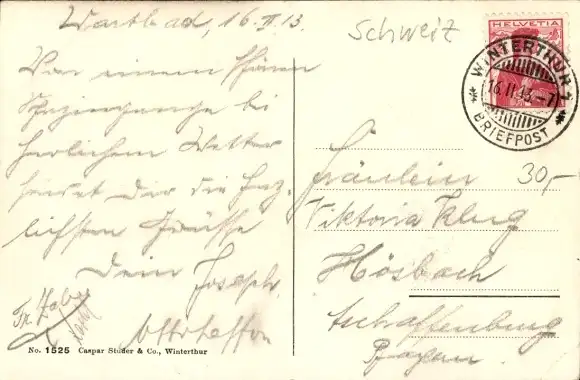 Wartbad, 16.II.13.
Von einem schönen
Spaziergange bei
herrlichem Wetter
sendet Dir die herz-
lichsten Grüsse
Dein Joseph.
Schweiz
HELVETIA
WINTERTHUR 1
16.II.13.-7
BRIEFPOST
30,-
Fräulein
Viktoria Klug
Hösbach
Aschaffenburg
Bayern
No. 1525 Caspar Studer & Co., Winterthur